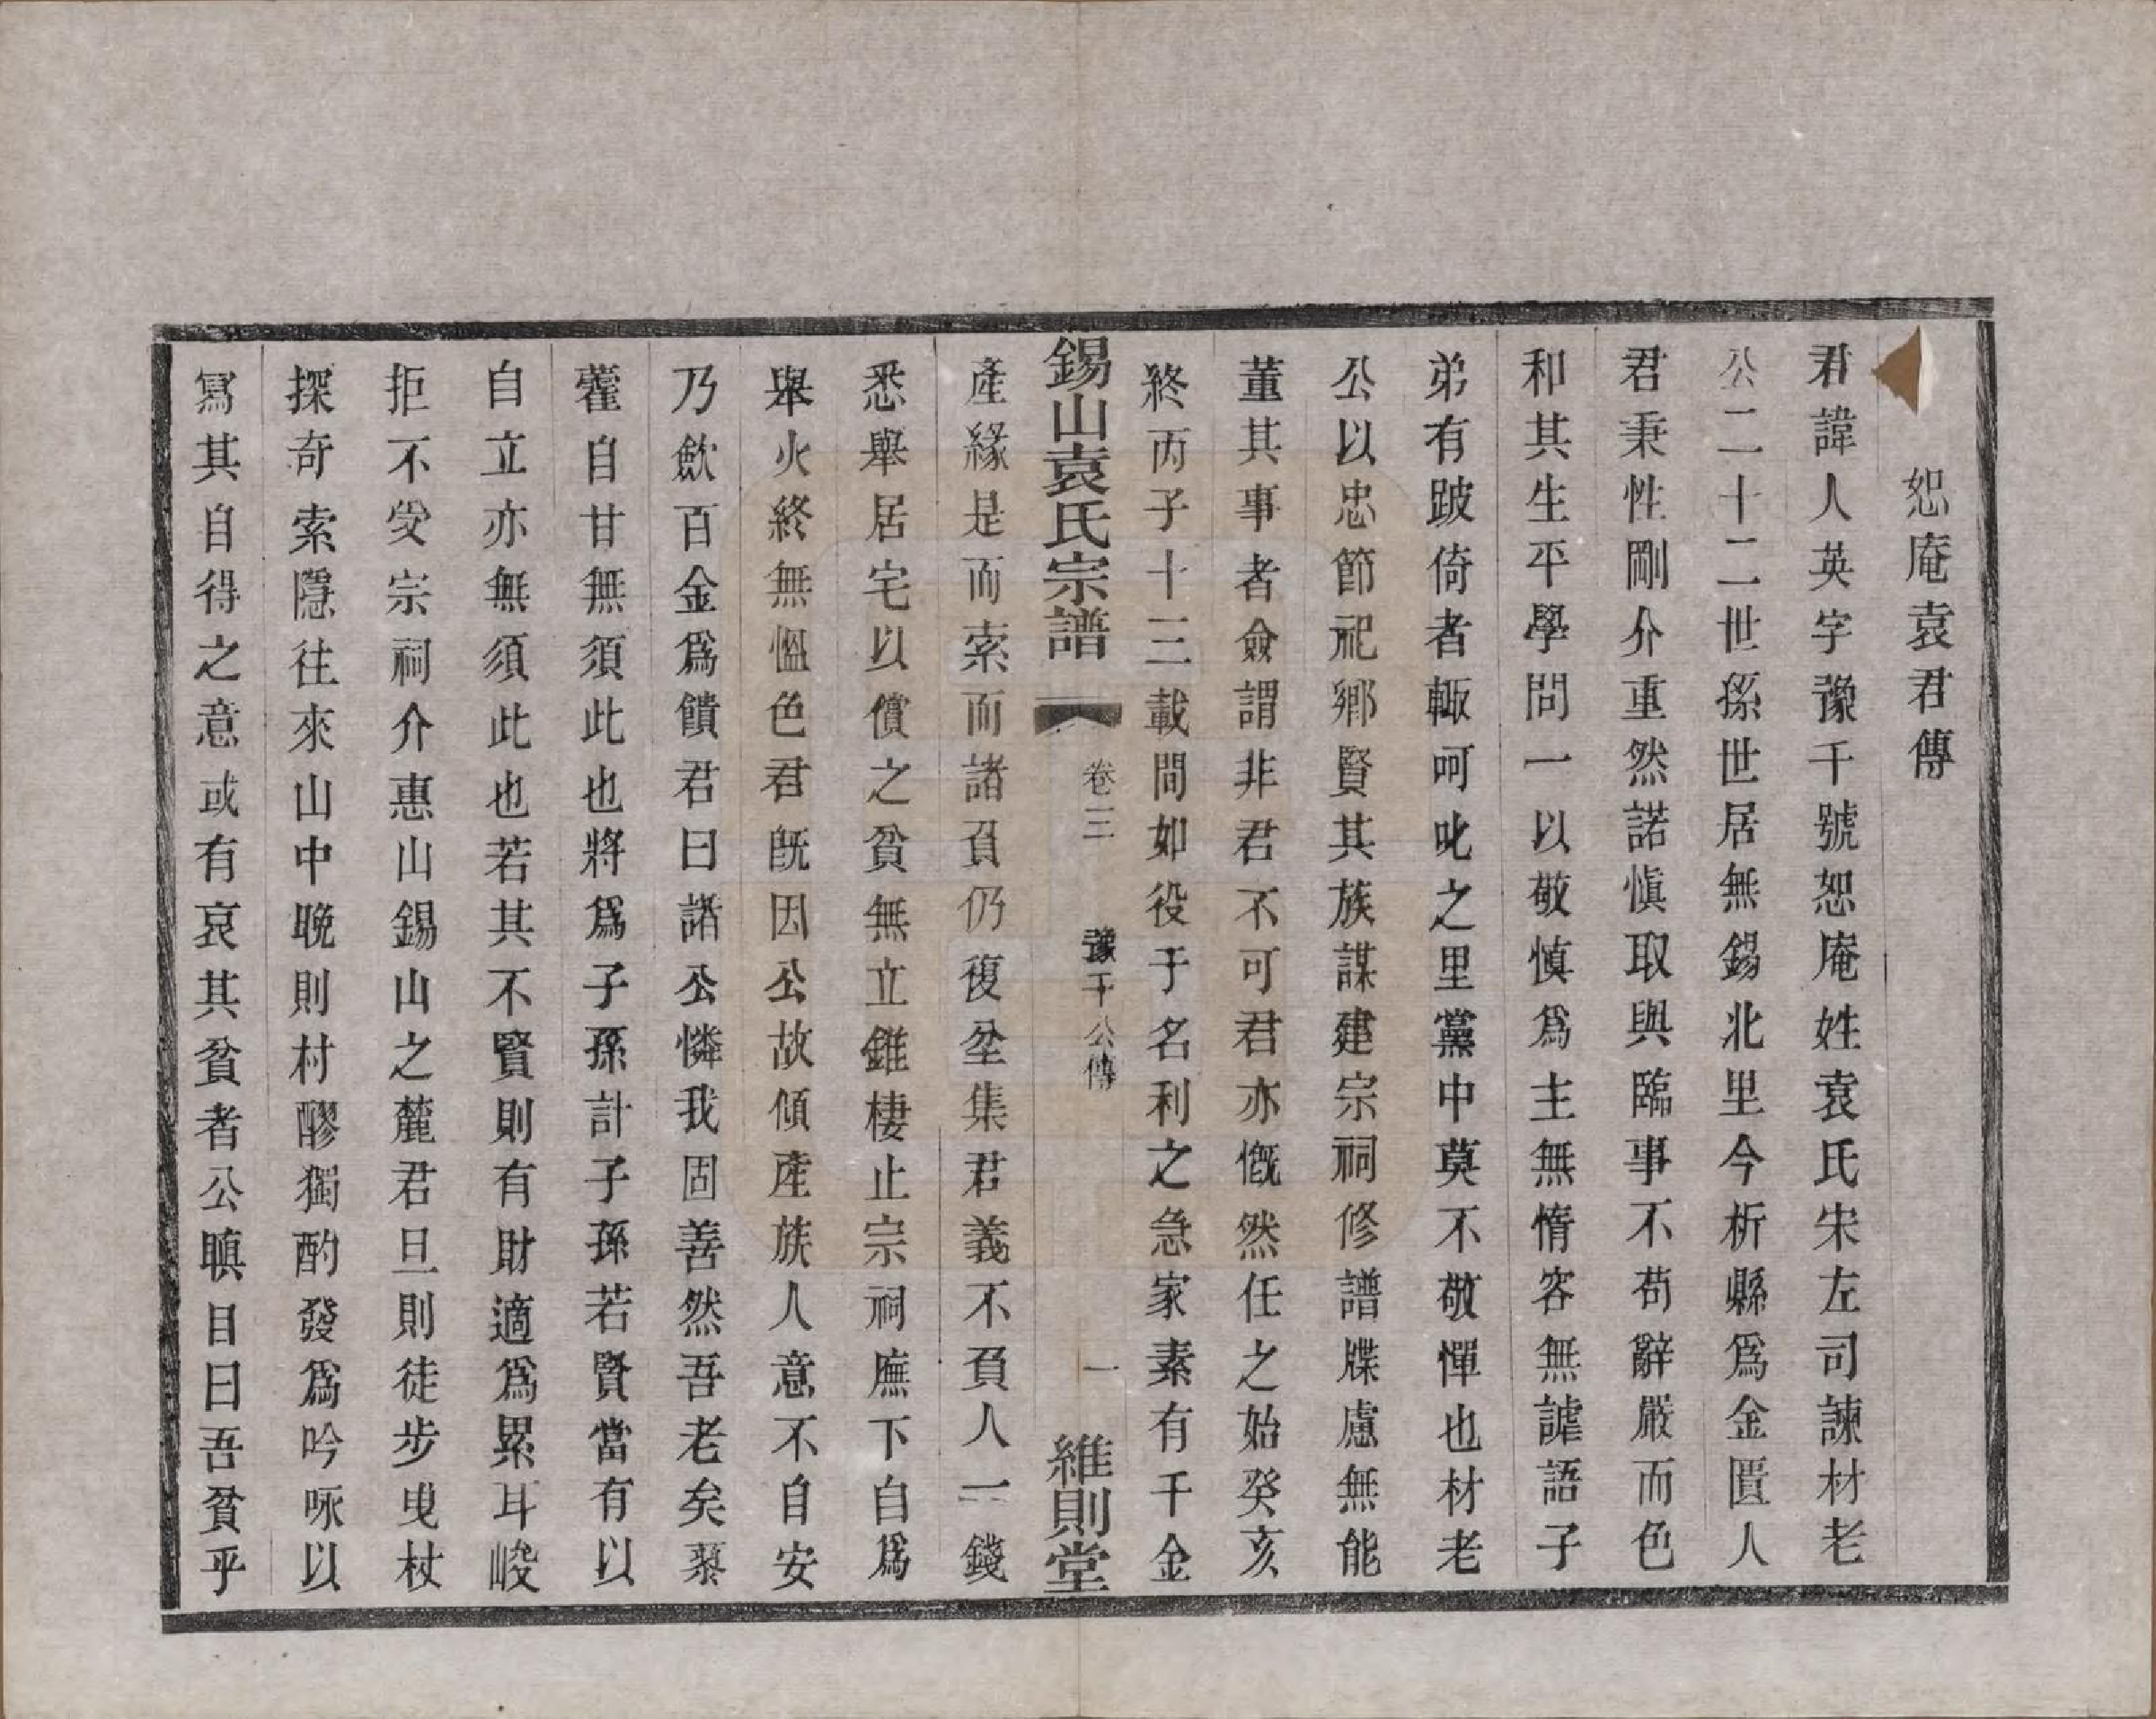 恕庵袁君傳
君諱人英字豫千號恕庵姓袁氏宋左司諫材老
公二十二世孫世居無錫北里今析縣爲金匱人
君秉性剛介重然諾愼取與臨事不苟辭嚴而色
和其生平學問一以敬慎爲主無惰容無謔語子
弟有跛倚者輙呵叱之里黨中莫不敬憚也材老
公以忠節祀鄉賢其族謀建宗祠修譜牒慮無能
董其事者僉謂非君不可君亦慨然任之始癸亥
終丙子十三載間如役于名利之急家素有千金
錫山袁氏宗譜 卷三 豫千公傳 一 維則堂
產緣是而索而諸負仍複坌集君義不負人一錢
悉舉居宅以償之貧無立錐棲止宗祠廡下自爲
舉火終無慍色君旣因公故傾產族人意不自安
乃歛百金爲饋君曰諸公憐我固善然吾老矣藜
藿自甘無須此也將爲子孫計子孫若賢當有以
自立亦無須此也若其不賢則有財適爲累耳峻
拒不受宗祠介惠山錫山之麓君旦則徒步曳杖
探奇索隱往來山中晚則村醪獨酌發爲吟咏以
寫其自得之意或有哀其貧者公瞋目曰吾貧乎